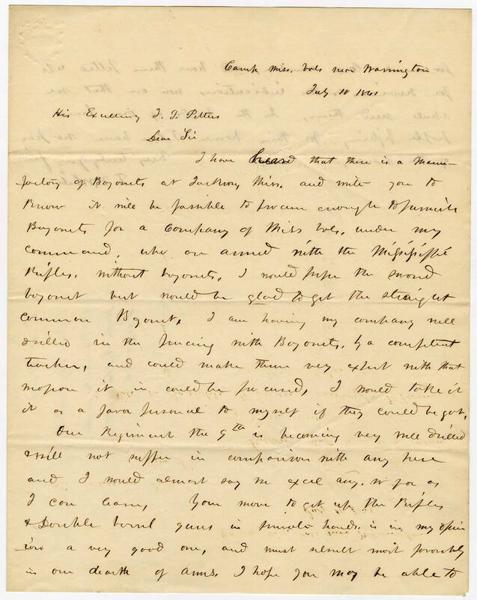 Camp Miss. Vols near Warrington
July 10 1861
His Excellency J. J. Pettus
Dear Sir
I have heard that there is a Manu-
factory of Bayonets at Jackson, Miss. and write you to
know if it will be possible to procure enough to furnish
Bayonets for a Company of Miss Vols. under my
command, who are armed with the Mississippi
Rifles, without bayonets, I would prefer the sword
bayonet but would be glad to get the straight
common Bayonet, I am having my company well
drilled in the fencing with Bayonets, by a competent
teacher, and could make them very expert with that
weapon if it could be procured, I would take it
as a favor personal to myself if they could be got.
Our Regiment the 9th is becoming very well drilled
& will not suffer in comparison with any here
and I would almost say we excel any. as far as
I can learn, Your move to get up the Rifles
& double barrel guns in private hands is in my opin
ion a very good one, and must result most favorably
in our dearth of arms. I hope you may be able to